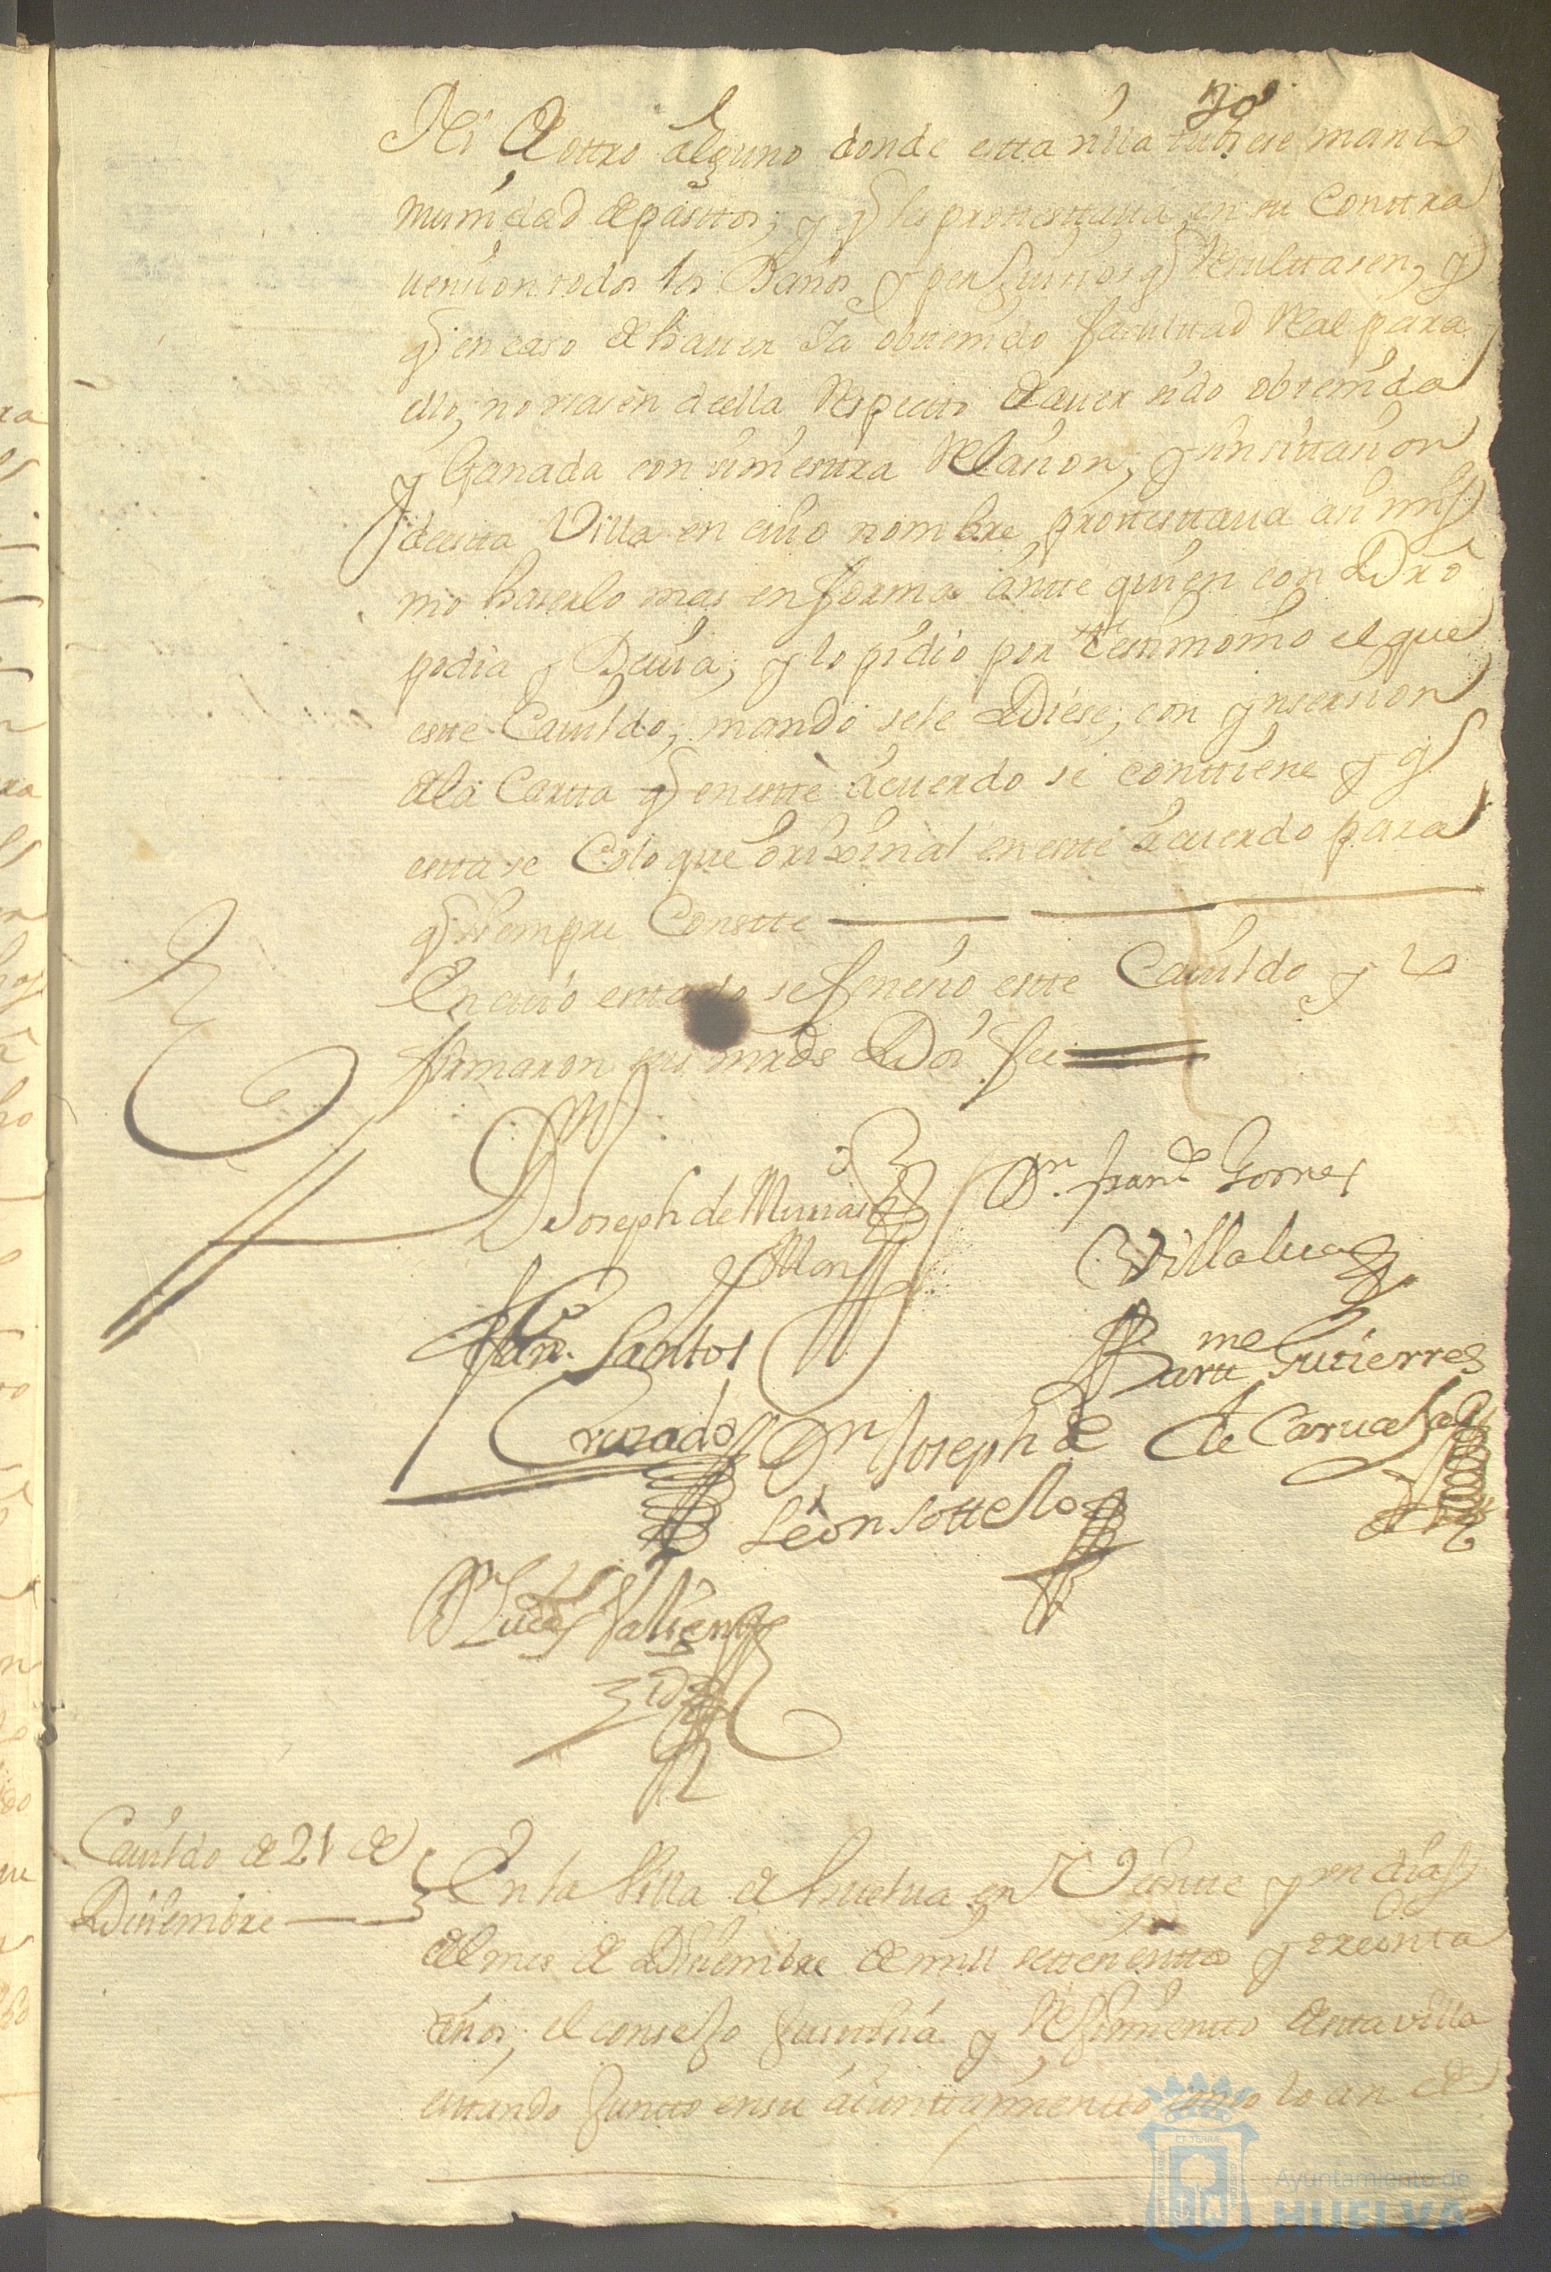 70
Ni de ottro alguno donde esta villa tubiese manco
munidad de pasttos; y q les prottesttaua en su Conttra
uencion todos los Daños y perjuicios q Resulttasen; y
q en caso de hauer Ia obttenido facultad Real para
ello, no vsasen de ella Respecto de auer sido obtenida
y Ganada con siniestra Relacion; y sin cittacion
de estta Villa en cuio nombre prottesttaua asi mis
mo haserlo mas en forma antte quien con Dro
podia y Deuia; y lo pidio por testimonio el que
estte Cauildo; mando se le Diese; con ynsersion
de la Cartta q en estte acuerdo se conttiene y q
esta se Coloque orixinal en estte acuerdo para
q siempre Constte
En cuio estado se feneció estte Cauildo y lo
firmaron sus mrds Doi fee
D Joseph de
Dn. franco Gomes
Villalua
Fran. Santos
Cruzado
Bartme Gutierres
de
Dn Joseph de
Leon Sottello
Lucas Valiente
Cauildo de 21 de
Disiembre
En la Villa de huelua en Veinte y un dias
del mes de Disiembre de mill settesientos y treinta
años; el consejo Justicia y Rejimientto de esta villa
estando Junto en su aiunttamientto como lo an de
Ayuntamiento de
HUELVA